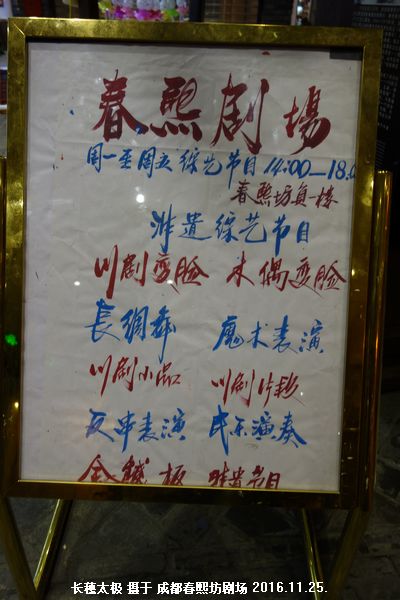 春熙剧場
周一至周五综艺节目14:00—18:0
春熙坊负一楼
非遗综艺节目
川剧变脸 木偶变脸
長绸舞 魔术表演
川剧小品 川剧片段
反串表演 民乐演奏
金钱板 非遗节目
长穗太极 摄于 成都春熙坊剧场 2016.11.25.